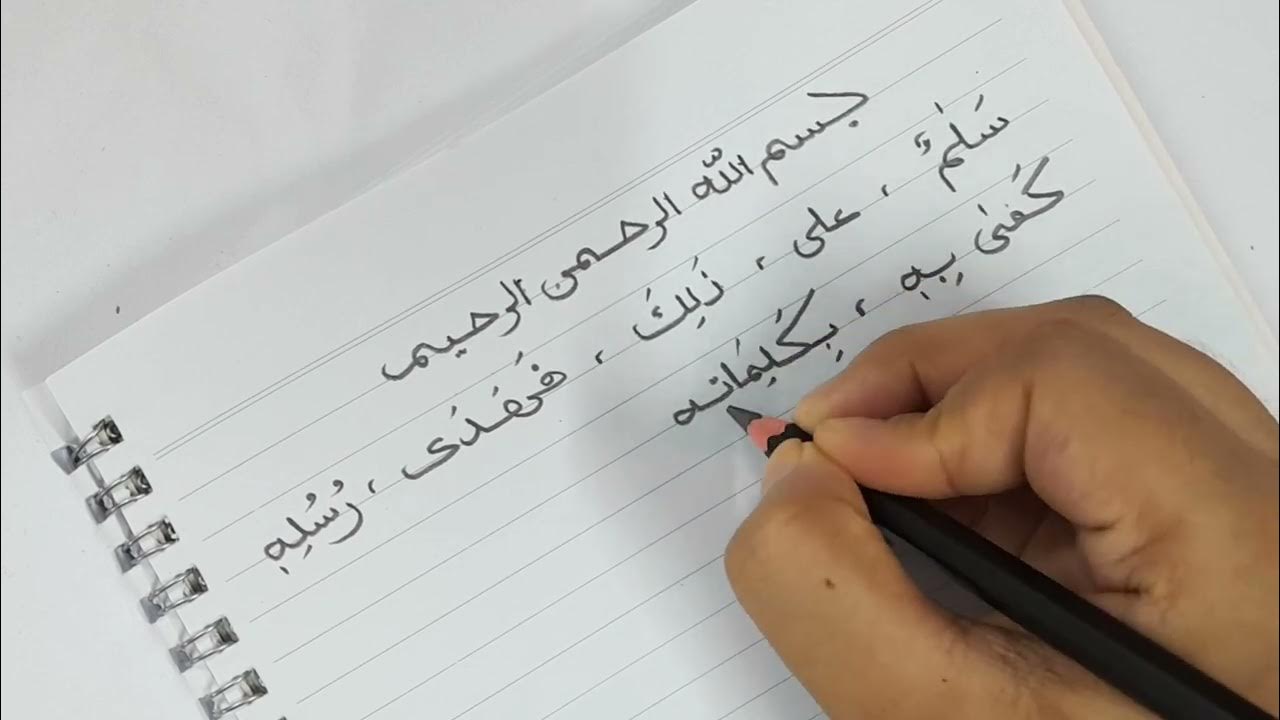 بسم الله الرحمن الرحيم
سَلٰمٌ ، على ، ذَلِكَ ، فَهَدَى ، رُسُلِهِ
كَفَىٰ بِهِ ، بِكَلِمَاته